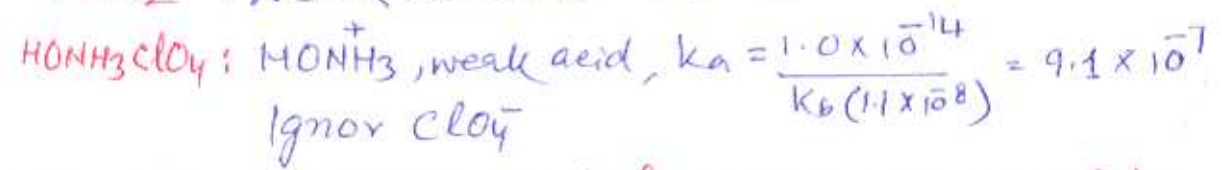 HONH₃ClO₄ : HONH₃⁺, weak acid, ka = 1.0 x 10⁻¹⁴ / Kb (1.1 x 10⁻⁸) = 9.1 x 10⁻⁷
Ignor ClO₄⁻